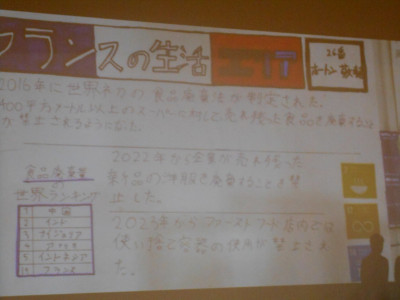 フランスの生活
26番
2016年に世界初の食品廃棄法が制定された。
400平方メートル以上のスーパーに対して売れ残った食品を廃棄する
が禁止されるようになった。
食品廃棄量
の
世界ランキング
1 中国
2 インド
3 ナイジェリア
4
5 インドネシア
フランス
2022年から企業が売れ残った
新品の洋服を廃棄することを禁
止した。
2023年からファーストフード店内では
使い捨て容器の使用が禁止され
た。